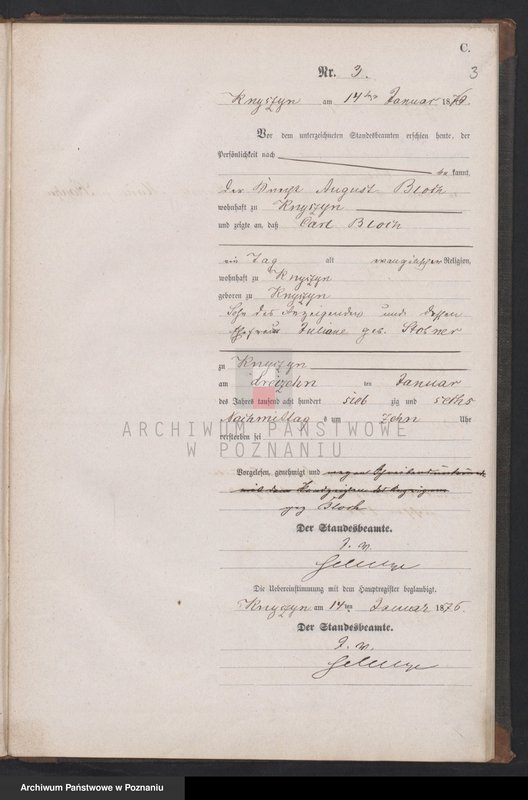 C.
3
Nr. 3.
Knyszyn am 14ten Januar 1876.
Vor dem unterzeichneten Standesbeamten erschien heute, der
Persönlichkeit nach
be kannt,
der August Bloch
wohnhaft zu Knyszyn
und zeigte an, daß Carl Bloch
ein Tag alt evangelischer Religion,
wohnhaft zu Knyszyn
geboren zu Knyszyn
Sohn des Anzeigenden und dessen
Ehefrau Juliane geb.
zu Knyszyn
am dreizehn ten Januar
des Jahres tausend acht hundert sieb zig und sechs
Nachmittag s um Zehn Uhr
verstorben sei
ARCHIWUM PAŃSTWOWE
W POZNANIU
Vorgelesen, genehmigt und wegen
mit dem Handzeichen
gez Bloch
Der Standesbeamte.
J. V.
Die Uebereinstimmung mit dem Hauptregister beglaubigt.
Knyszyn am 14ten Januar 1876.
Der Standesbeamte.
J. V.
Archiwum Państwowe w Poznaniu